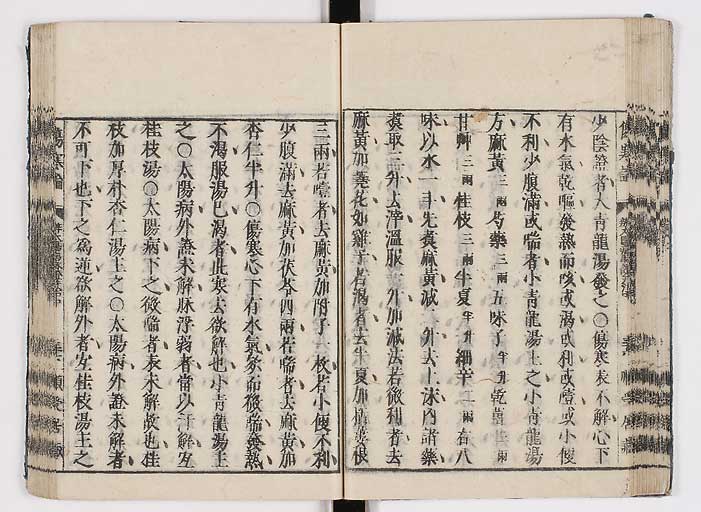 少陰證者大青龍湯發之〇傷寒表不解心下
有水氣乾嘔發熱而咳或渴或利或噎或小便
不利少腹滿或喘者小青龍湯主之小青龍湯
方麻黃三兩芍藥三兩五味子半升乾薑三兩
甘艸三兩桂枝三兩半夏半升細辛三兩右八
味以水一斗先煑麻黃減二升去上沫內諸藥
煑取三升去滓溫服一升加減法若微利者去
麻黃加蕘花如雞子若渴者去半夏加括蔞根
三兩若噎者去麻黃加附子一枚若小便不利
少腹滿去麻黃加茯苓四兩若喘者去麻黃加
杏仁半升〇傷寒心下有水氣欬而微喘發熱
不渴服湯已渴者此寒去欲解也小青龍湯主
之〇太陽病外證未解脉浮弱者當以汗解宜
桂枝湯〇太陽病下之微喘者表未解故也桂
枝加厚朴杏仁湯主之〇太陽病外證未解者
不可下也下之爲逆欲解外者宜桂枝湯主之
傷寒論